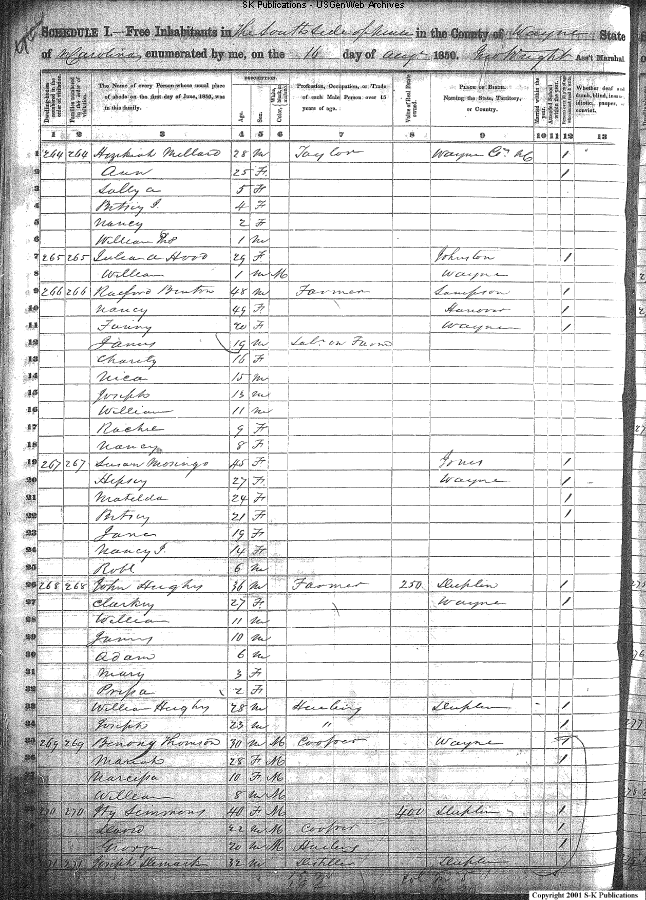 SK Publications - USGenWeb Archives
SCHEDULE I.—Free Inhabitants in The South side of in the County of Wayne State
of N Carolina, enumerated by me, on the 16 day of Augt 1850. Jno Wright Ass't Marshal
DESCRIPTION.
Dwelling-houses numbered in the order of visitation.
Families numbered in the order of visitation.
The Name of every Person whose usual place of abode on the first day of June, 1850, was in this family.
Age.
Sex.
Color
Profession, Occupation, or Trade of each Male Person over 15 years of age.
Value of Real Estate owned.
PLACE OF BIRTH. Naming the State, Territory, or Country.
Married within the year.
Attended School within the year.
Whether deaf and dumb, blind, insane, idiotic, pauper, or convict.
1 2 3 4 5 6 7 8 9 10 11 12 13
1 264 264 Hezekiah Millard 28 M Taylor Wayne Co. NC 1
2 Ann 25 F 1
3 Sally A 5 F
4 Betsy J. 4 F
5 Nancy 2 F
6 William Thos 1 M
7 265 265 Julia A Hood 29 F Johnston 1
8 William 1 M M Wayne
9 266 266 Raeford Benton 48 M Farmer Sampson 1
10 Nancy 49 F Hanover 1
11 Fanny 20 F Wayne 1
12 James 19 M Lab. on Farm
13 Charity 16 F
14 Nica 15 M
15 Joseph 13 M
16 William 11 M
17 Rachel 9 F
18 Nancy 8 F
19 267 267 Susan 45 F Jones 1
20 Hepsey 27 F Wayne 1
21 Matilda 24 F 1
22 Betsey 21 F 1
23 Jane 19 F
24 Nancy J. 14 F
25 Robt 6 M
26 268 268 John Hughs 36 M Farmer 250 Duplin 1
27 Clarkey 27 F Wayne 1
28 William 11 M
29 James 10 M
30 Adam 6 M
31 Mary 3 F
32 2 F
33 William Hughs 28 M Duplin 1
34 Joseph 23 M " 1
35 269 269 Benony Thomson 30 M M Cooper Wayne 1
36 Mariah 28 F M 1
37 Narcissa 10 F M
William 8 M M
270 270 Simmons 40 F M 400 Duplin 1
David 22 M M Cooper 1
20 M M 1
271 271 Joseph 32 M Duplin 1
Copyright 2001 S-K Publications